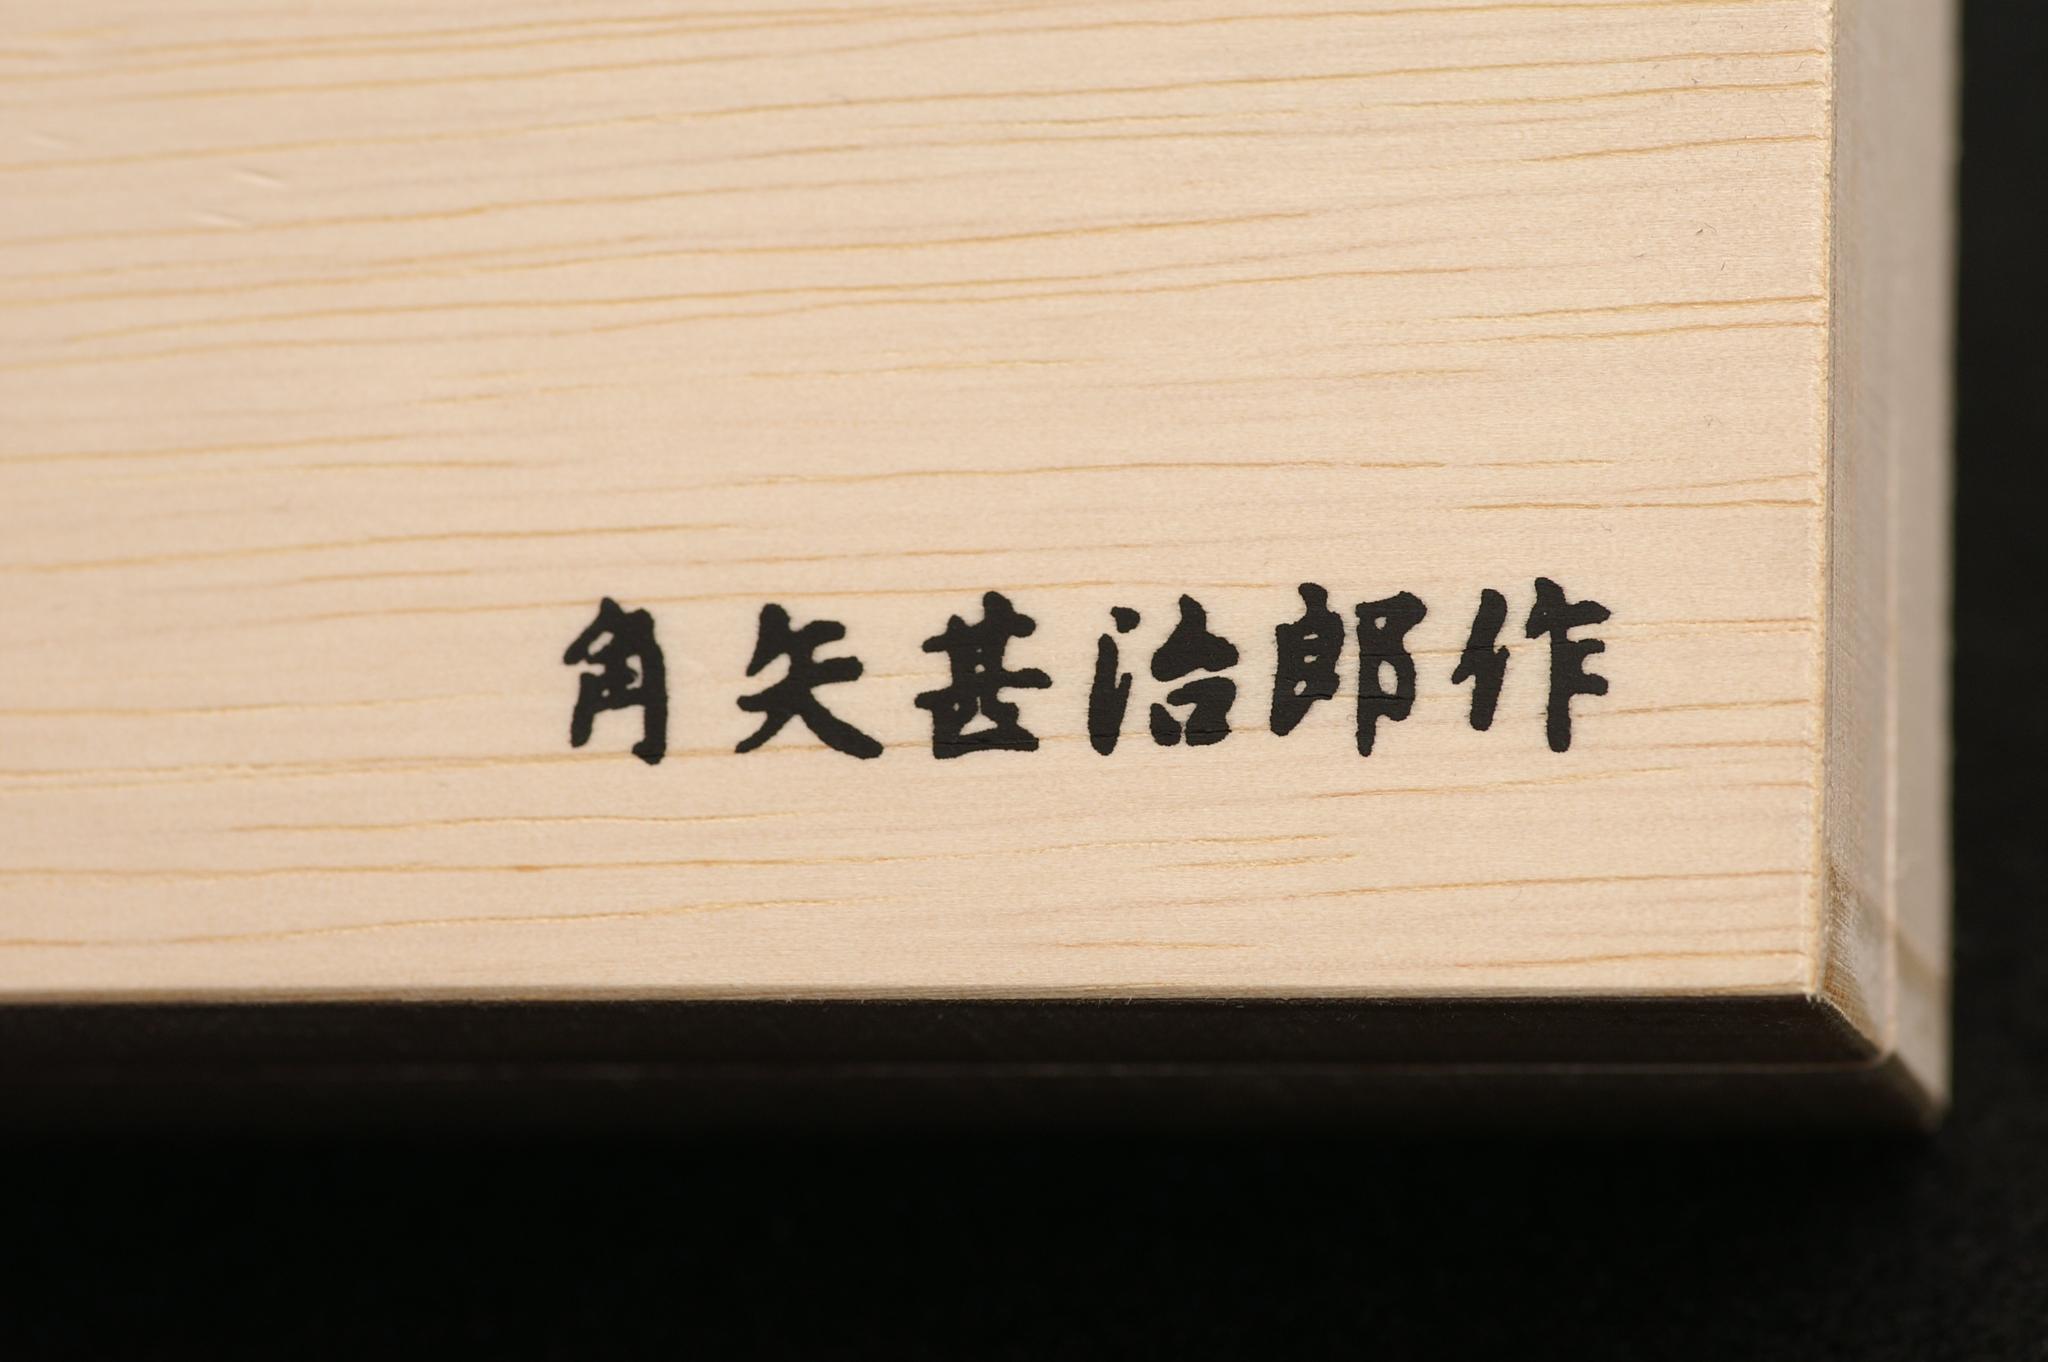 角矢甚治郎作